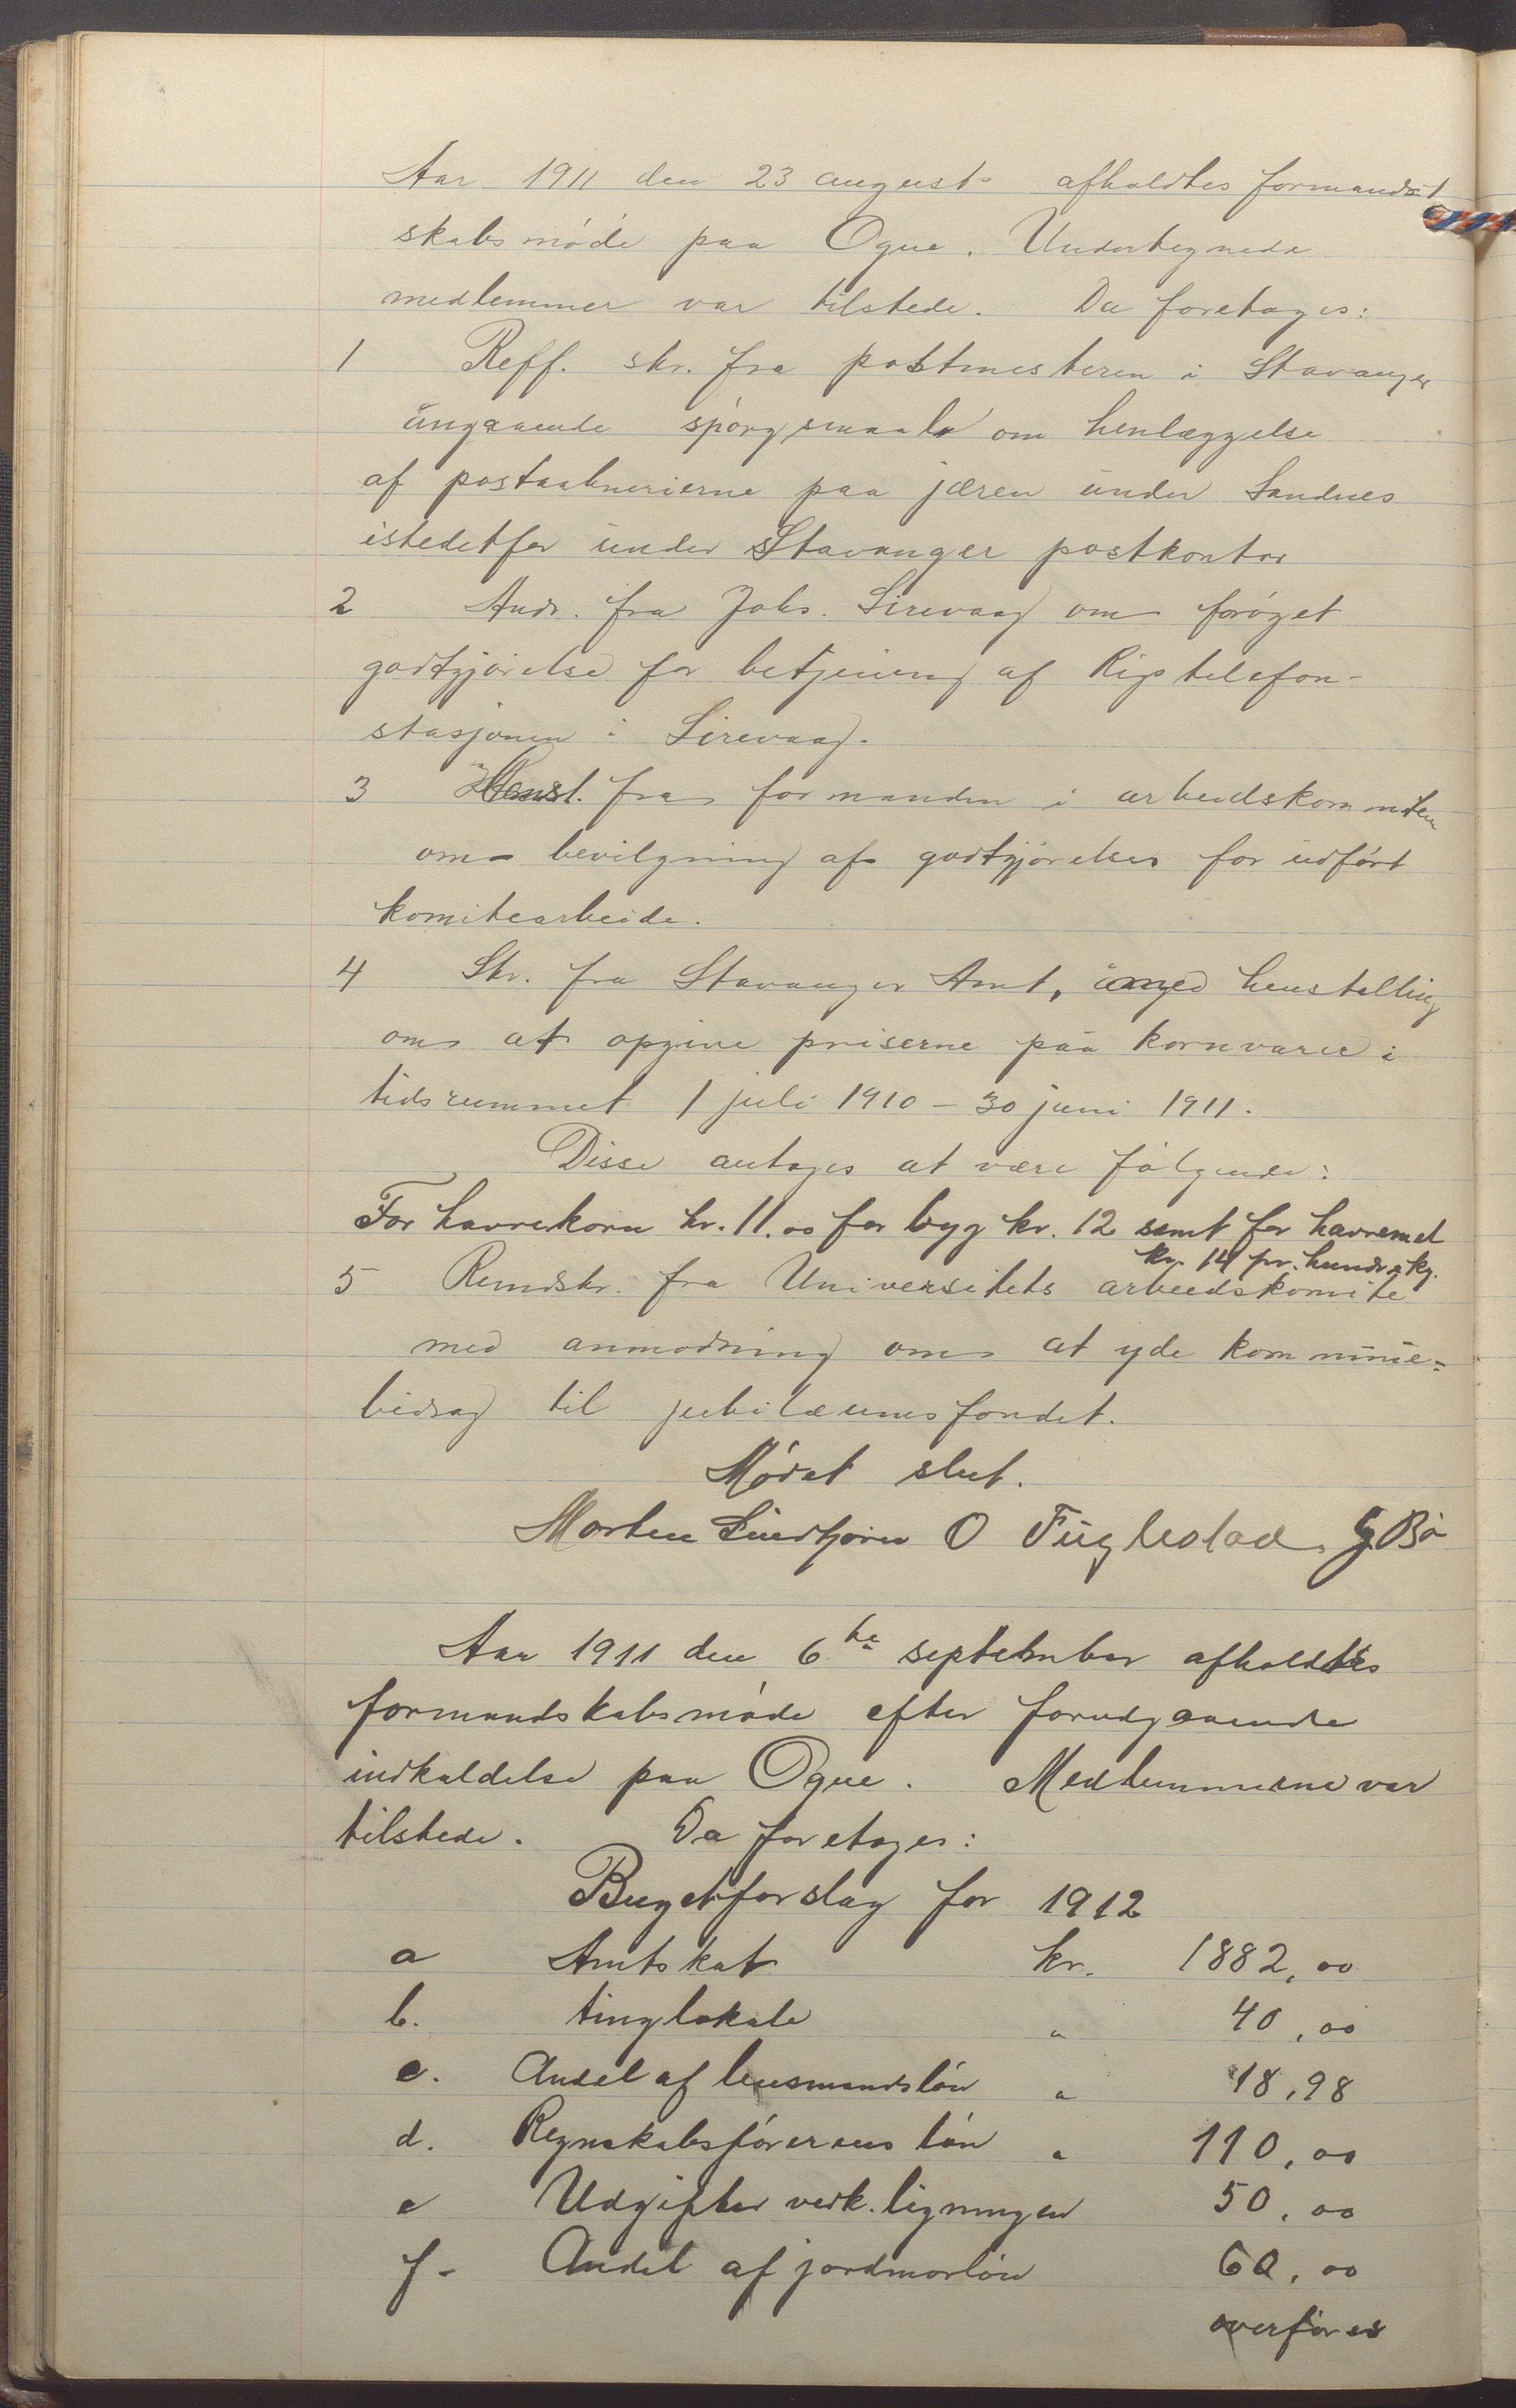 Aar 1911 den 23 august afholdtes formand-
skabsmøde paa Ogne. Undertegnede
medlemmer var tilstede. Da foretages:
1 Reff. skr. fra postmesteren i Stavanger
angaaende spørgsmaal om henlæggelse
af postaabnerierne paa jæren under Sandnes
istedetfor under Stavanger postkontor
2 Andr. fra Johs. Sirevaag om forøget
godtgjørelse for betjening af Rigstelefon-
stasjonen i Sirevaag.
3 Henst. fra formanden i arbeidskommiteen
om bevilgning af godtgjørelse for udført
komitearbeide.
4 Skr. fra Stavanger Amt, med henstelling
om at opgive priserne paa kornvarer i
tidsrummet 1 juli 1910 - 30 juni 1911.
Disse antages at være følgende:
For havrekorn kr. 11.00 for byg kr. 12 samt for havremel
kr. 14 pr. hundr. kg.
5 Rundskr. fra Universitets arbeidskomite
med anmodning om at yde kommune-
bidrag til jubilæumsfondet.
Mødet slut.
Morten O Fuglestad. G Bø
Aar 1911 den 6te september afholdtes
formandskabsmøde efter forudgaaende
indkaldelse paa Ogne. Medlemmerne var
tilstede. Da foretages:
Bugetforslag for 1912
a Amtskat kr. 1882,00
b. tinglokale " 40,00
c. Andel af lensmandsløn " 18,98
d. Regnskabsførerens løn " 110,00
e Udgifter vedk. ligningen 50,00
f - Andel af jordmorløn 60,00
overføres